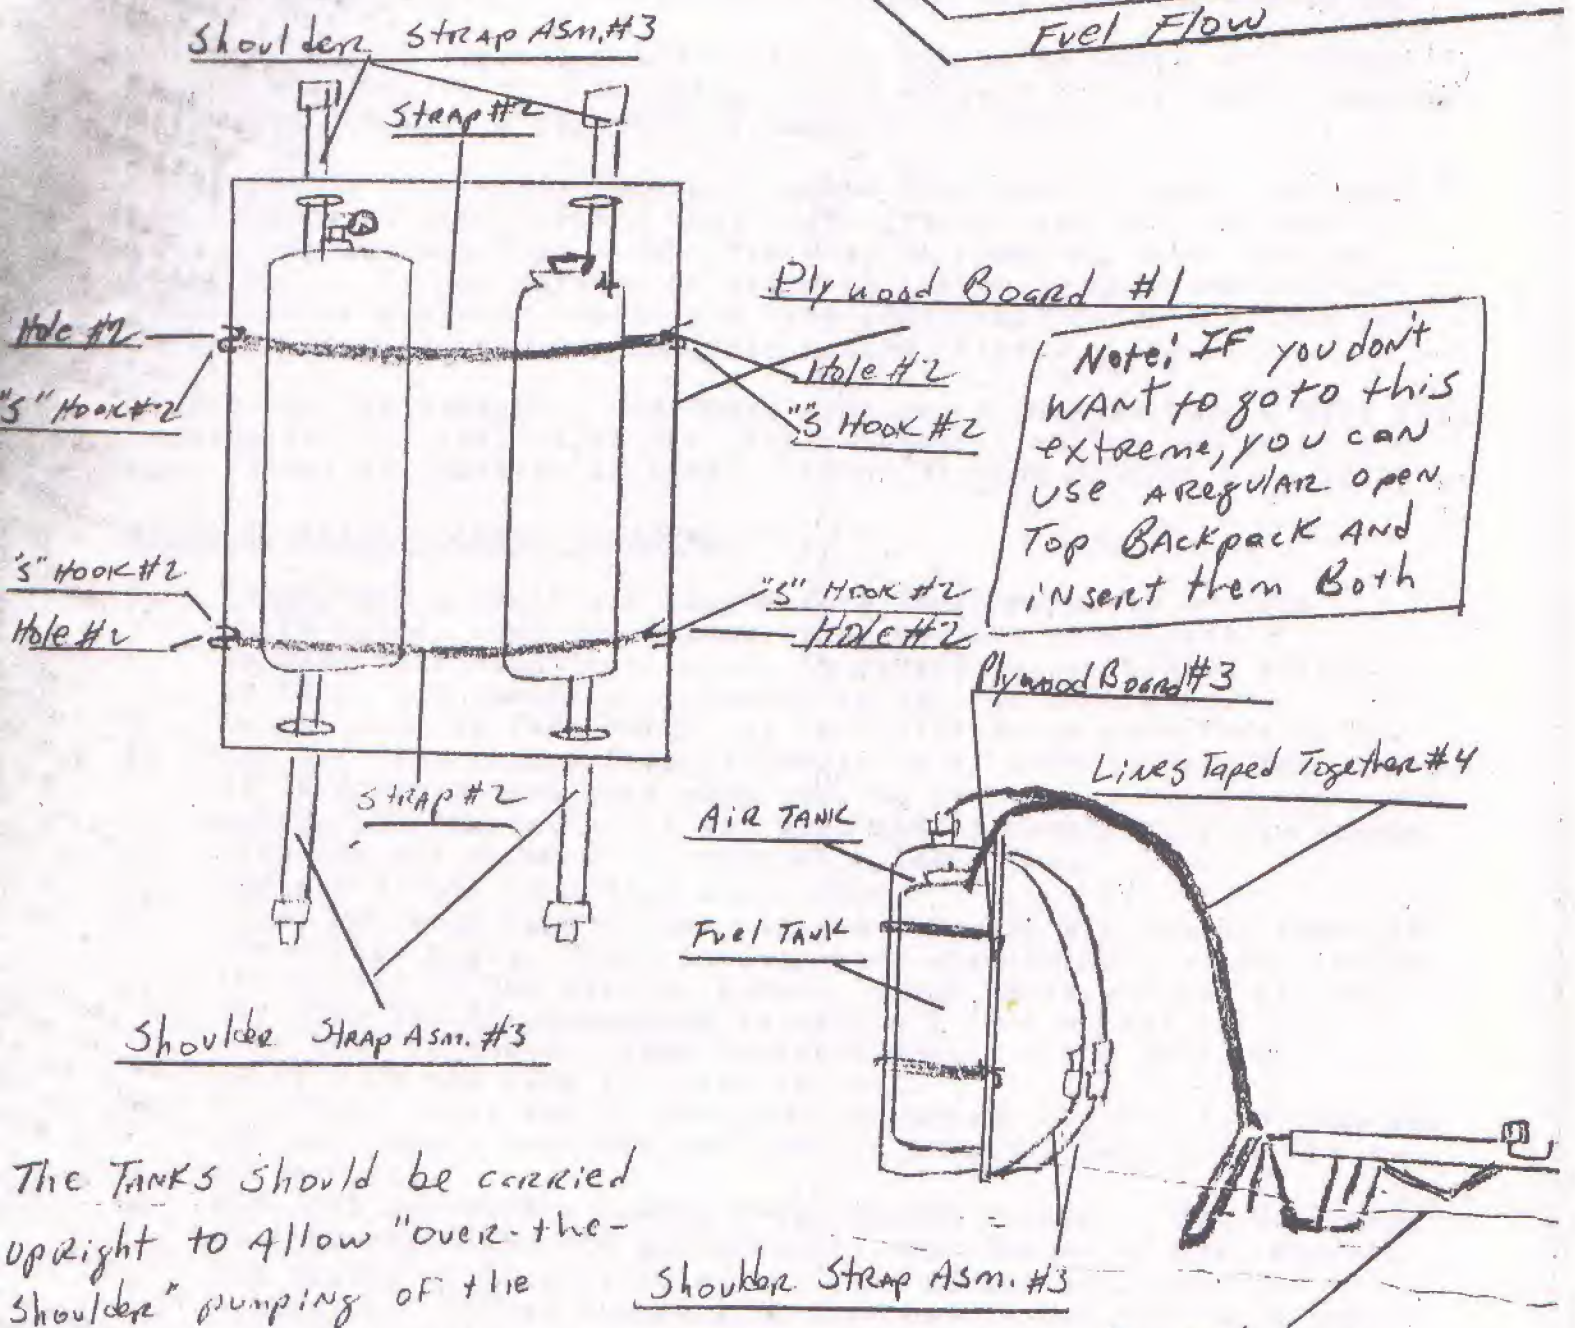 Fuel Flow
Shoulder Strap Asm.#3
Strap #2
Plywood Board #1
Hole #2
Hole #2
"S" Hook #2
"S" Hook #2
Note: If you don't
want to go to this
extreme, you can
use a regular open
Top Backpack and
insert them Both
"S" Hook #2
"S" Hook #2
Hole #2
Hole #2
Plywood Board #3
Lines Taped Together #4
Strap #2
Air Tank
Fuel Tank
Shoulder Strap Asm. #3
The Tanks should be carried
upright to allow "over-the-
shoulder" pumping of the
Shoulder Strap Asm. #3